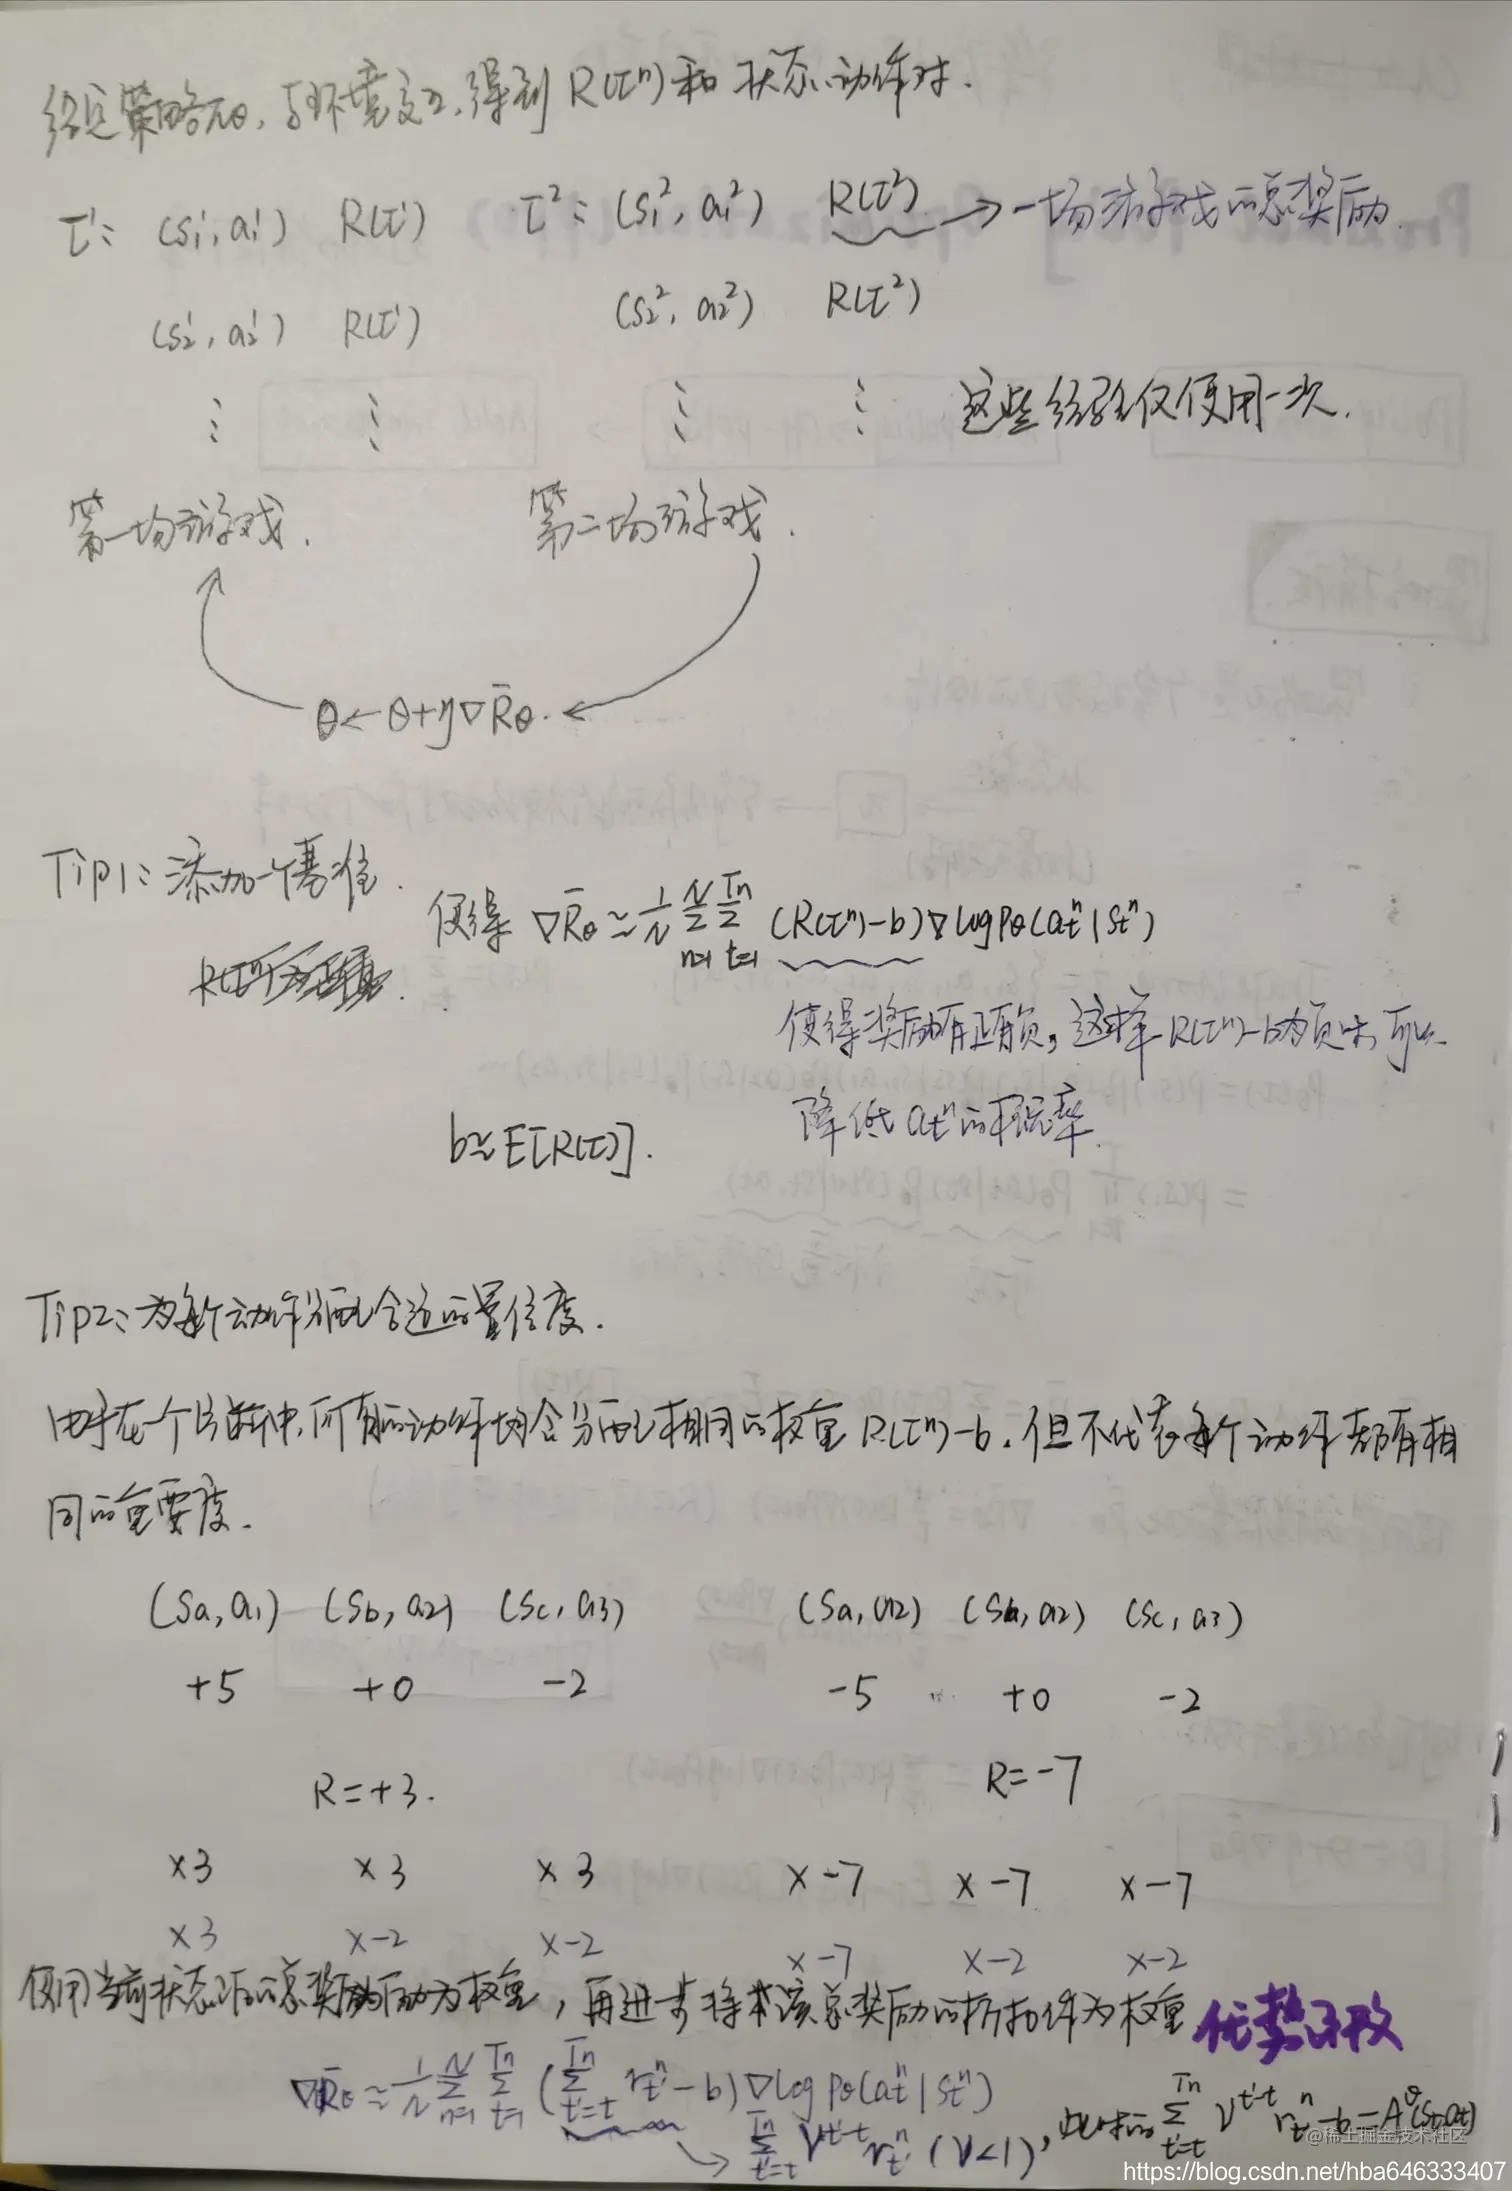 给定策略πθ, 与环境交互, 得到 R(τⁿ) 和 状态、动作对.
τ¹: (s₁¹, a₁¹) R(τ¹) τ²: (s₁², a₁²) R(τ²) → 一场游戏的总奖励.
(s₂¹, a₂¹) R(τ¹) (s₂², a₂²) R(τ²)
⋮ ⋮ ⋮ ⋮ 这些经验仅使用一次.
第一场游戏. 第二场游戏.
θ ← θ+η∇R̄θ.
Tip1: 添加一个基准.
使得 ∇R̄θ ≈ 1/N Σ_{n=1}^{N} Σ_{t=1}^{Tn} (R(τⁿ)-b)∇logPθ(atⁿ|stⁿ)
使得奖励有正有负, 这样R(τⁿ)-b为负时, 可以
降低atⁿ的概率.
b≈E[R(τ)].
Tip2: 为每个动作分配合适的置信度.
由于在一个片段中, 所有的动作均会分配相同的权重 R(τⁿ)-b. 但不代表每个动作都有相
同的重要度.
(Sa, a1) (Sb, a2) (Sc, a3) (Sa, a2) (Sb, a2) (Sc, a3)
+5 +0 -2 -5 +0 -2
R=+3. R=-7
×3 ×3 ×3 ×-7 ×-7 ×-7
×3 ×-2 ×-2 ×-7 ×-2 ×-2
使用当前状态后的总奖励为权重, 再进一步将该总奖励的折扣作为权重 优势函数
∇R̄θ ≈ 1/N Σ_{n=1}^{N} Σ_{t=1}^{Tn} (Σ_{t'=t}^{Tn} r_{t'}ⁿ - b)∇logPθ(atⁿ|stⁿ)
→ Σ_{t'=t}^{Tn} γ^{t'-t} r_{t'}ⁿ (γ<1), 此时的 Σ_{t'=t}^{Tn} γ^{t'-t} r_{t'}ⁿ - b = A^θ(St, at)
@稀土掘金技术社区
https://blog.csdn.net/hba646333407